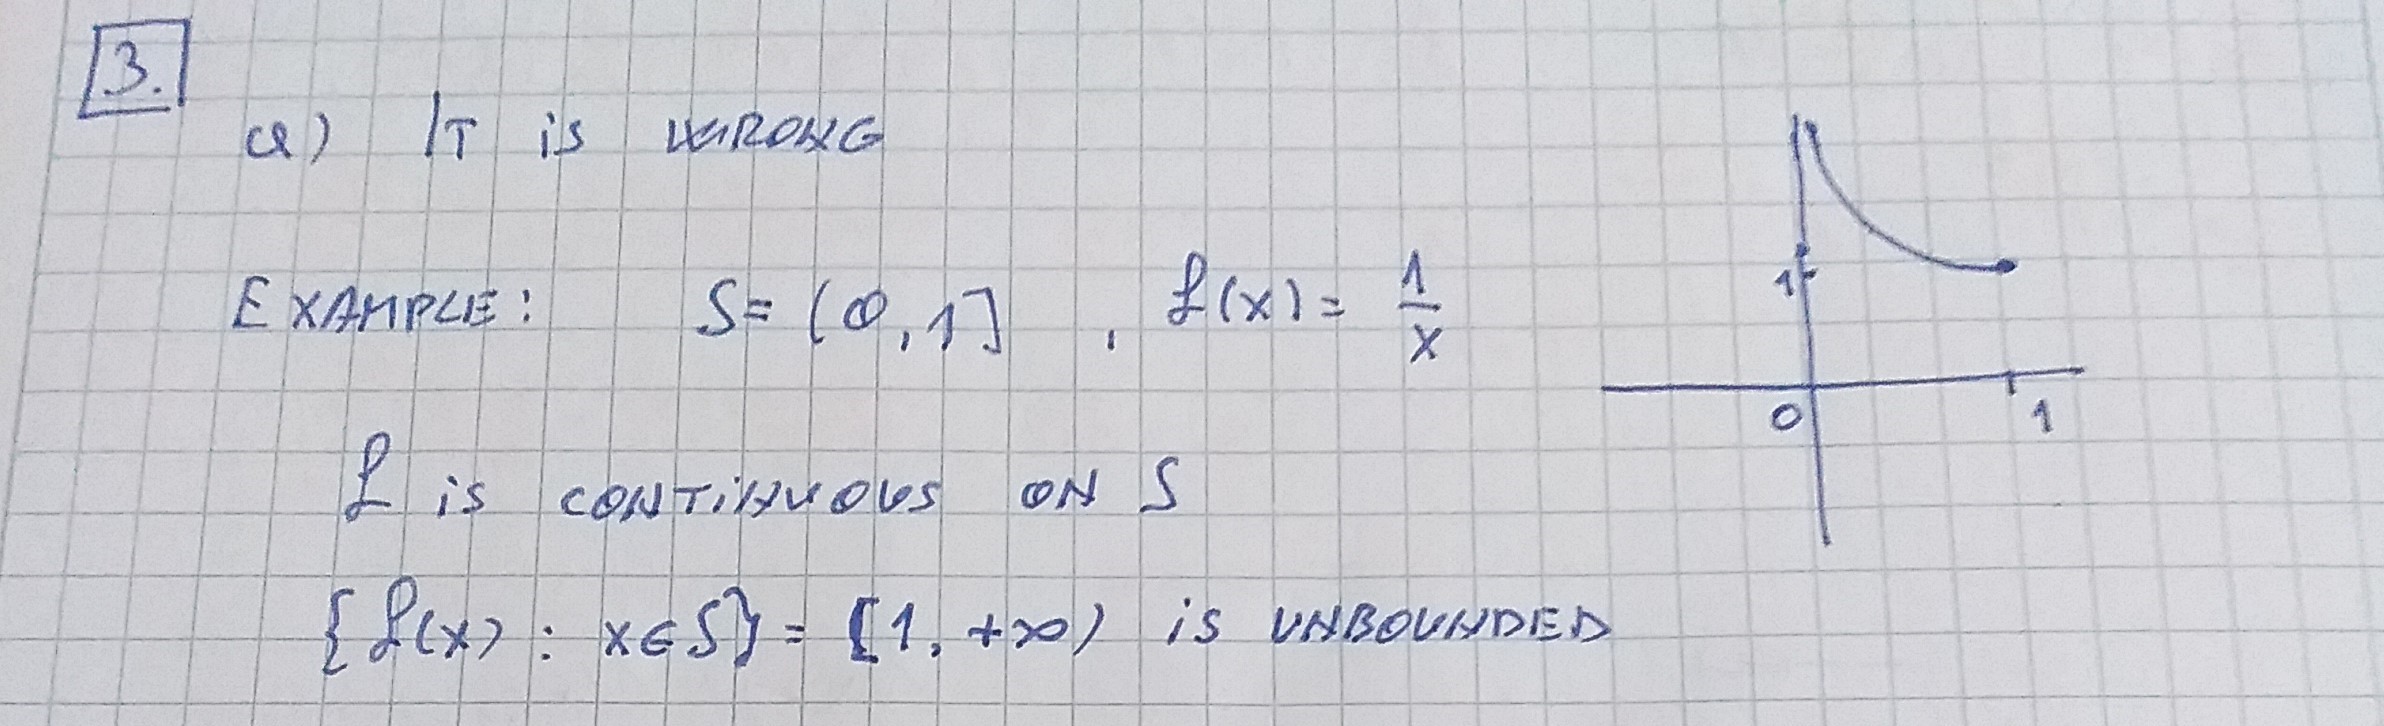 3.
a) It is wrong
Example: S = (0, 1] , f(x) = 1/x
f is continuous on S
{f(x) : x ∈ S} = [1, +∞) is unbounded
1
0 1